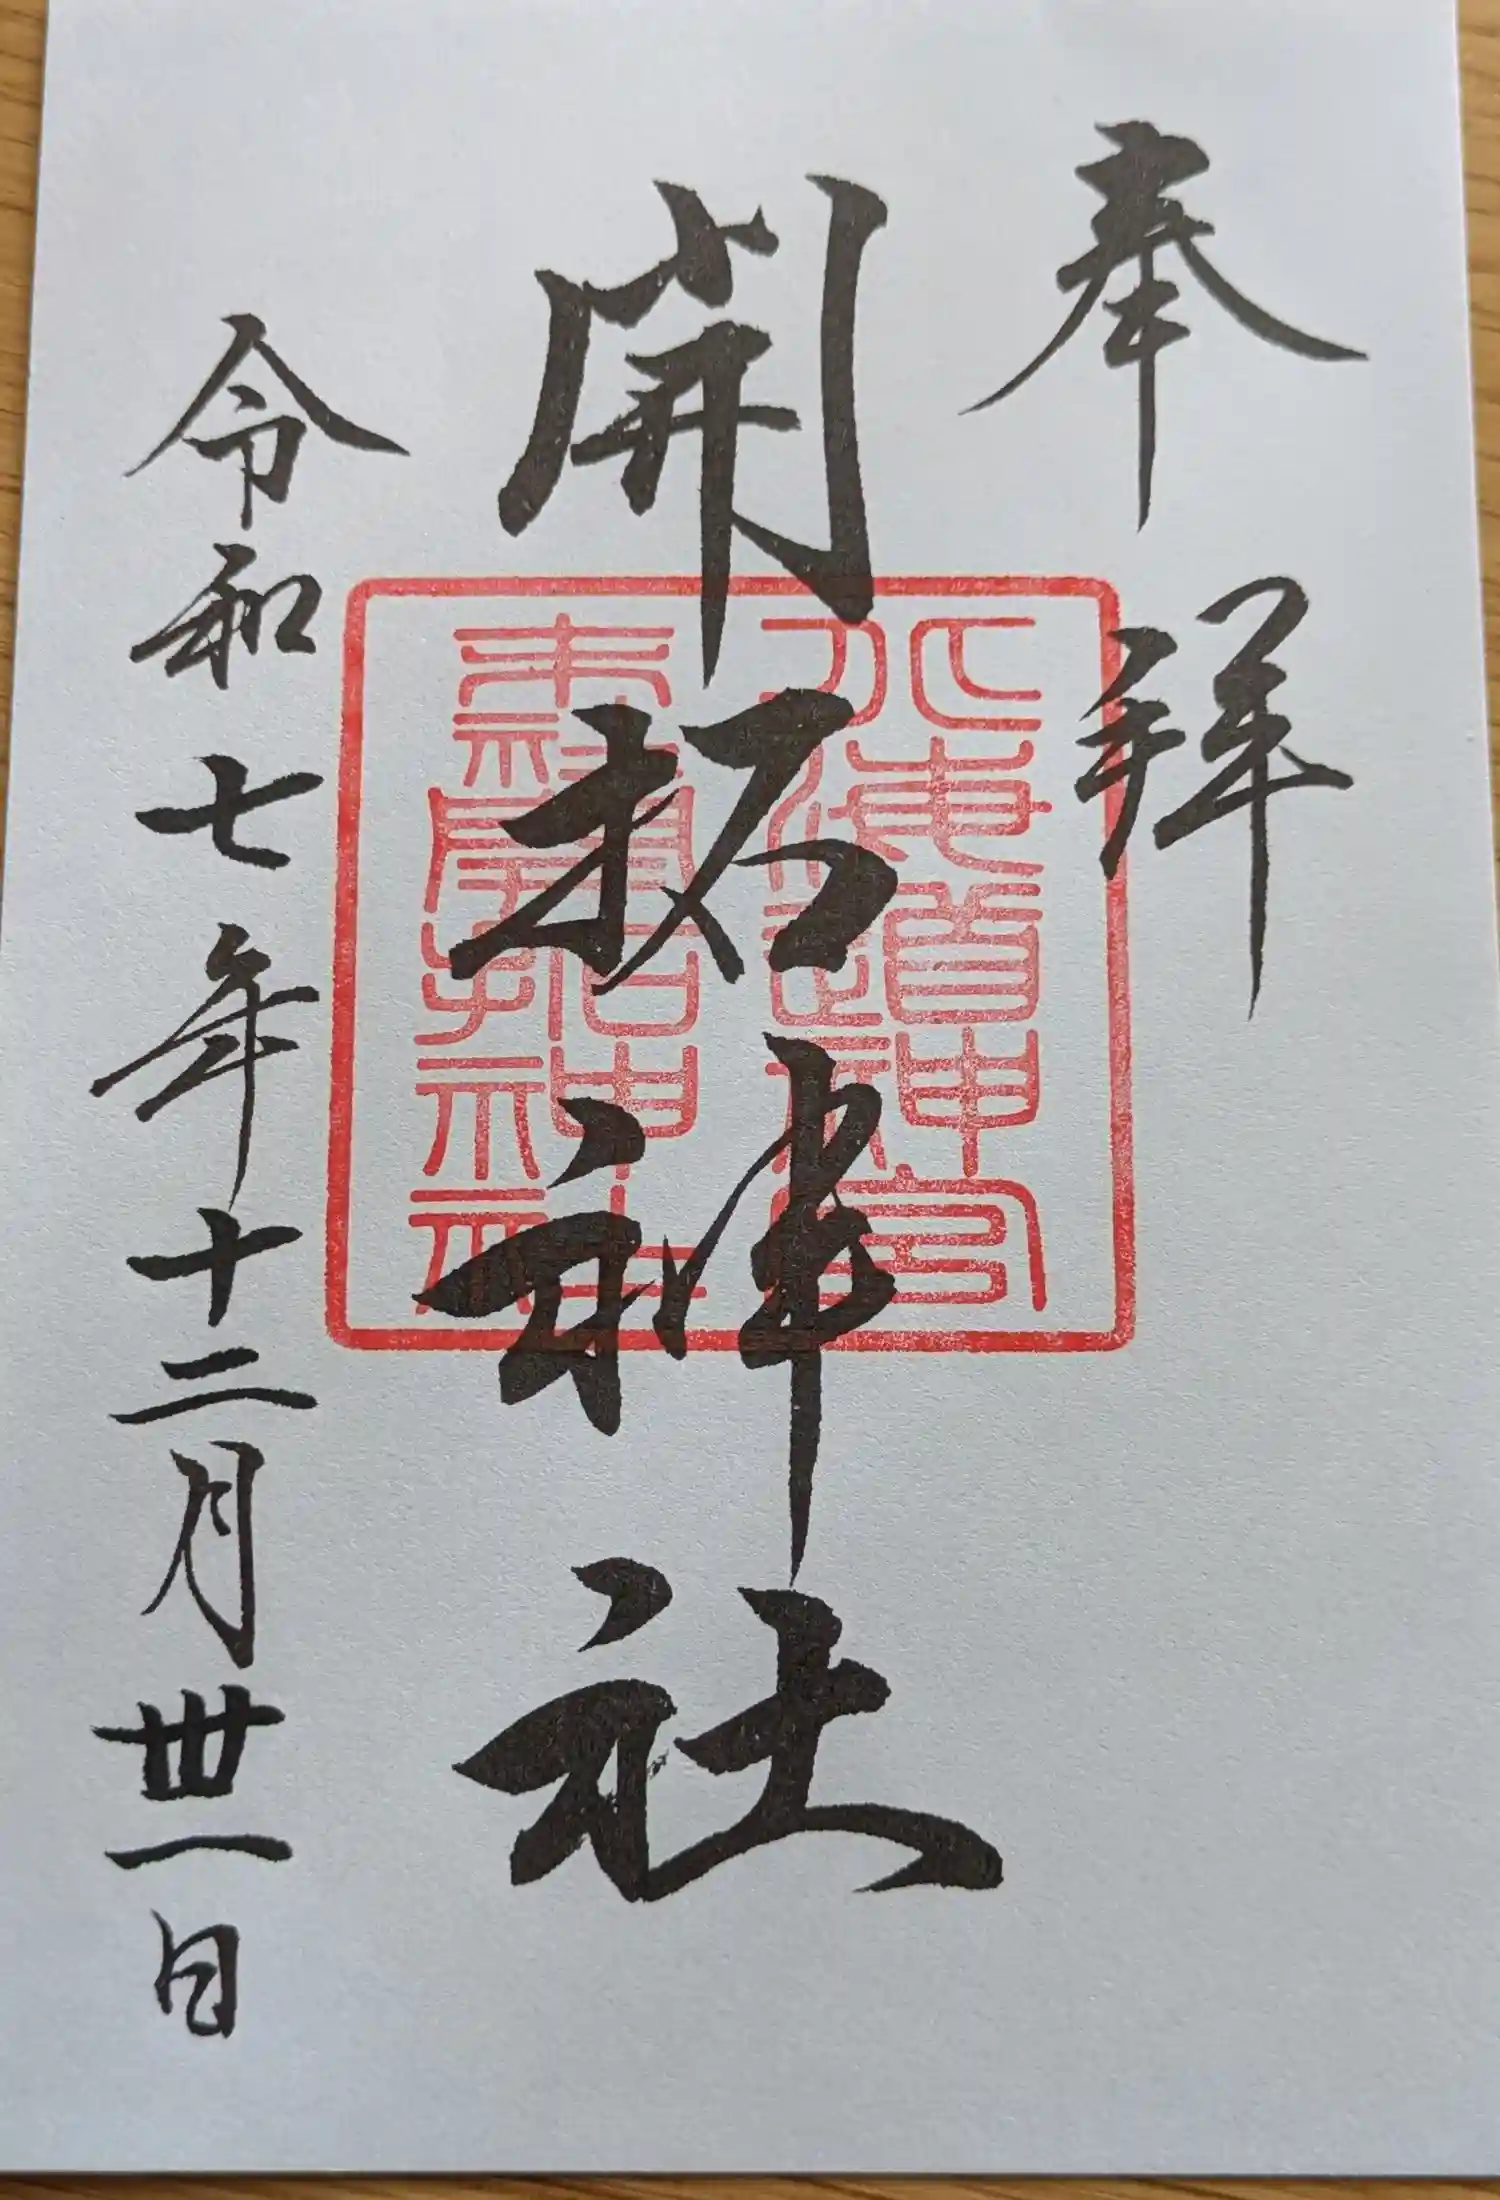 奉拝
開拓神社
北海道神宮
末社開拓神社
令和七年十二月卅一日